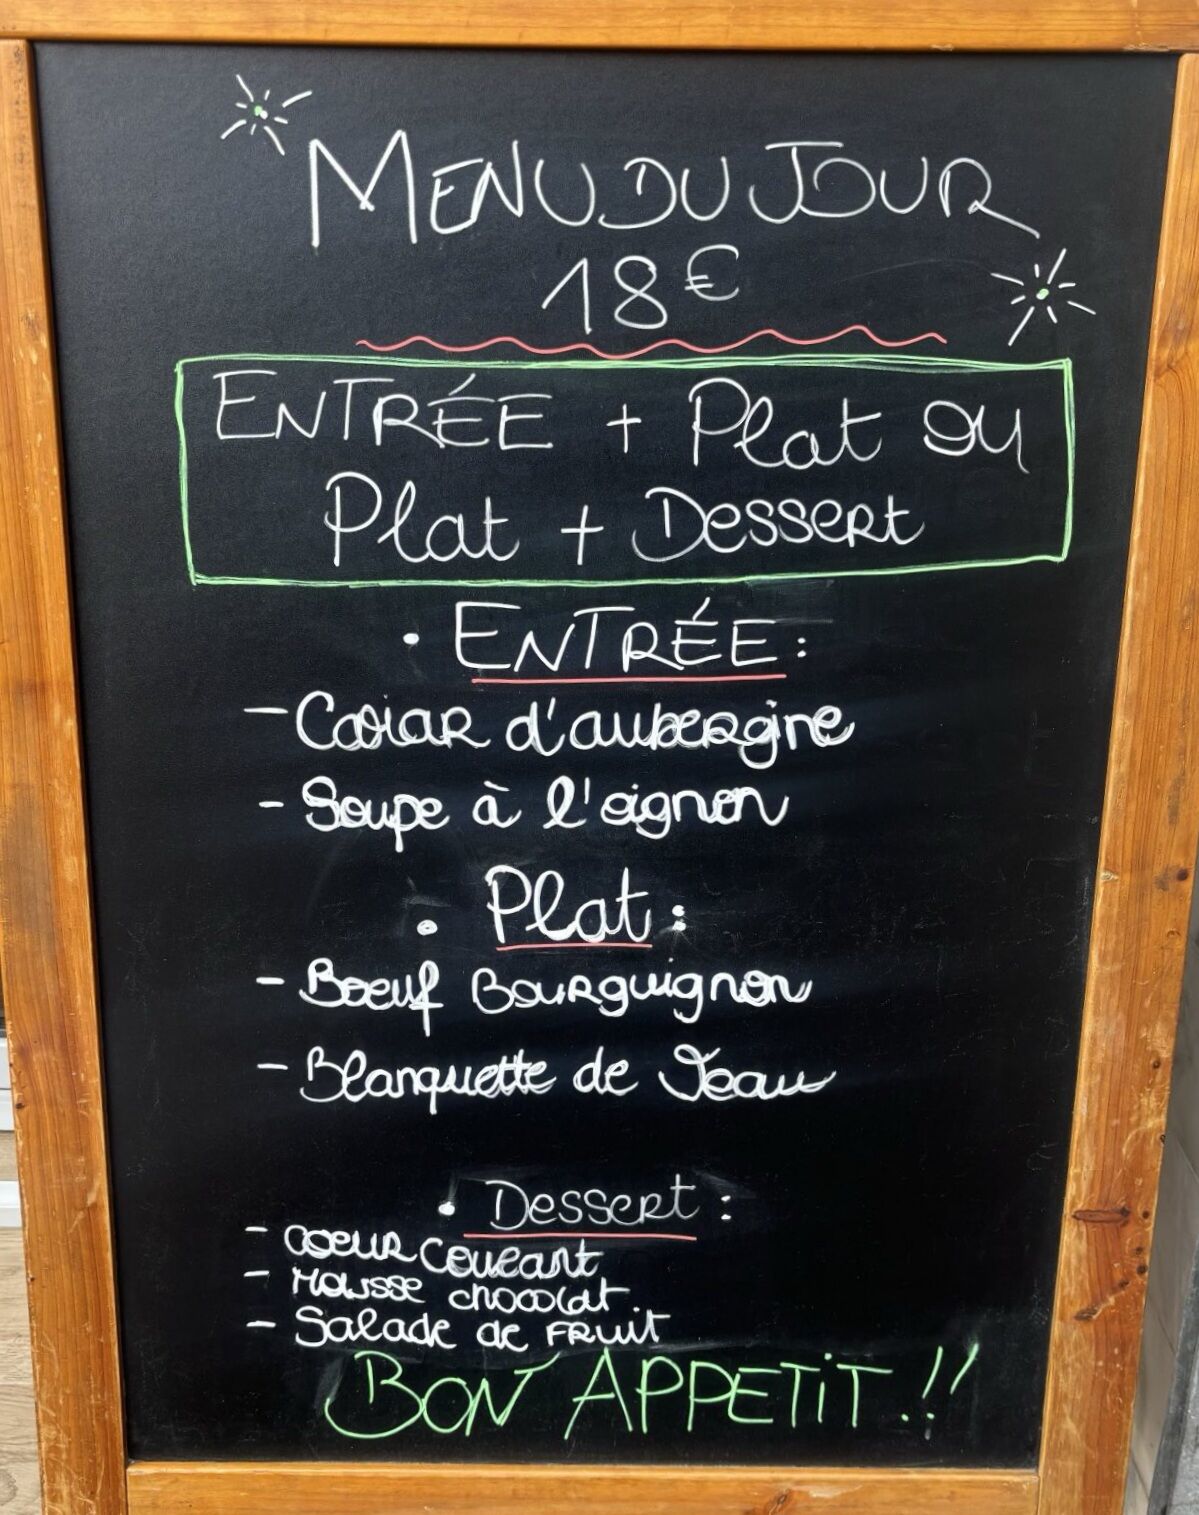 MENU DU JOUR
18€
ENTRÉE + Plat ou
Plat + Dessert
• ENTRÉE :
- Caviar d'aubergine
- Soupe à l'oignon
• Plat :
- Boeuf Bourguignon
- Blanquette de Veau
• Dessert :
- Coeur Coulant
- Mousse chocolat
- Salade de FRuit
BON APPETiT !!